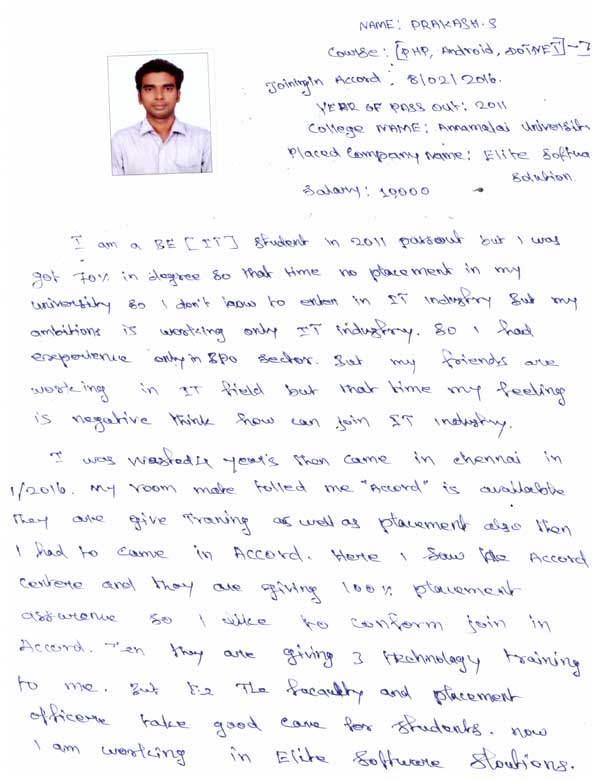 NAME: PRAKASH.S
Course: [PHP, Android, DOTNET]-
Joiningin Accord: 8/02/2016.
YEAR OF PASS OUT: 2011
College NAME: Annamalai Universit
Placed Company Name: Elite Softwa
Solution.
Salary: 10,000
I am a BE [IT] Student in 2011 passout but I was
got 70% in degree so that time no placement in my
university so I don't know to enter in IT Industry But my
ambitions is working only IT industry. So I had
experience only in BPO Sector. But my friends are
working in IT field but that time my feeling
is negative think how can join IT Industry.
I was wasted 4 year's then came in chennai in
1/2016. My room mate tolled me "Accord" is available
They are give Traning as well as placement also then
I had to came in Accord. Here I saw the Accord
centere and they are giving 100% placement
assurence so I like to conform join in
Accord. Ten they are giving 3 technology training
to me. But The facaulty and placement
officere take good care for students. now
I am working in Elite Software Sloutions.